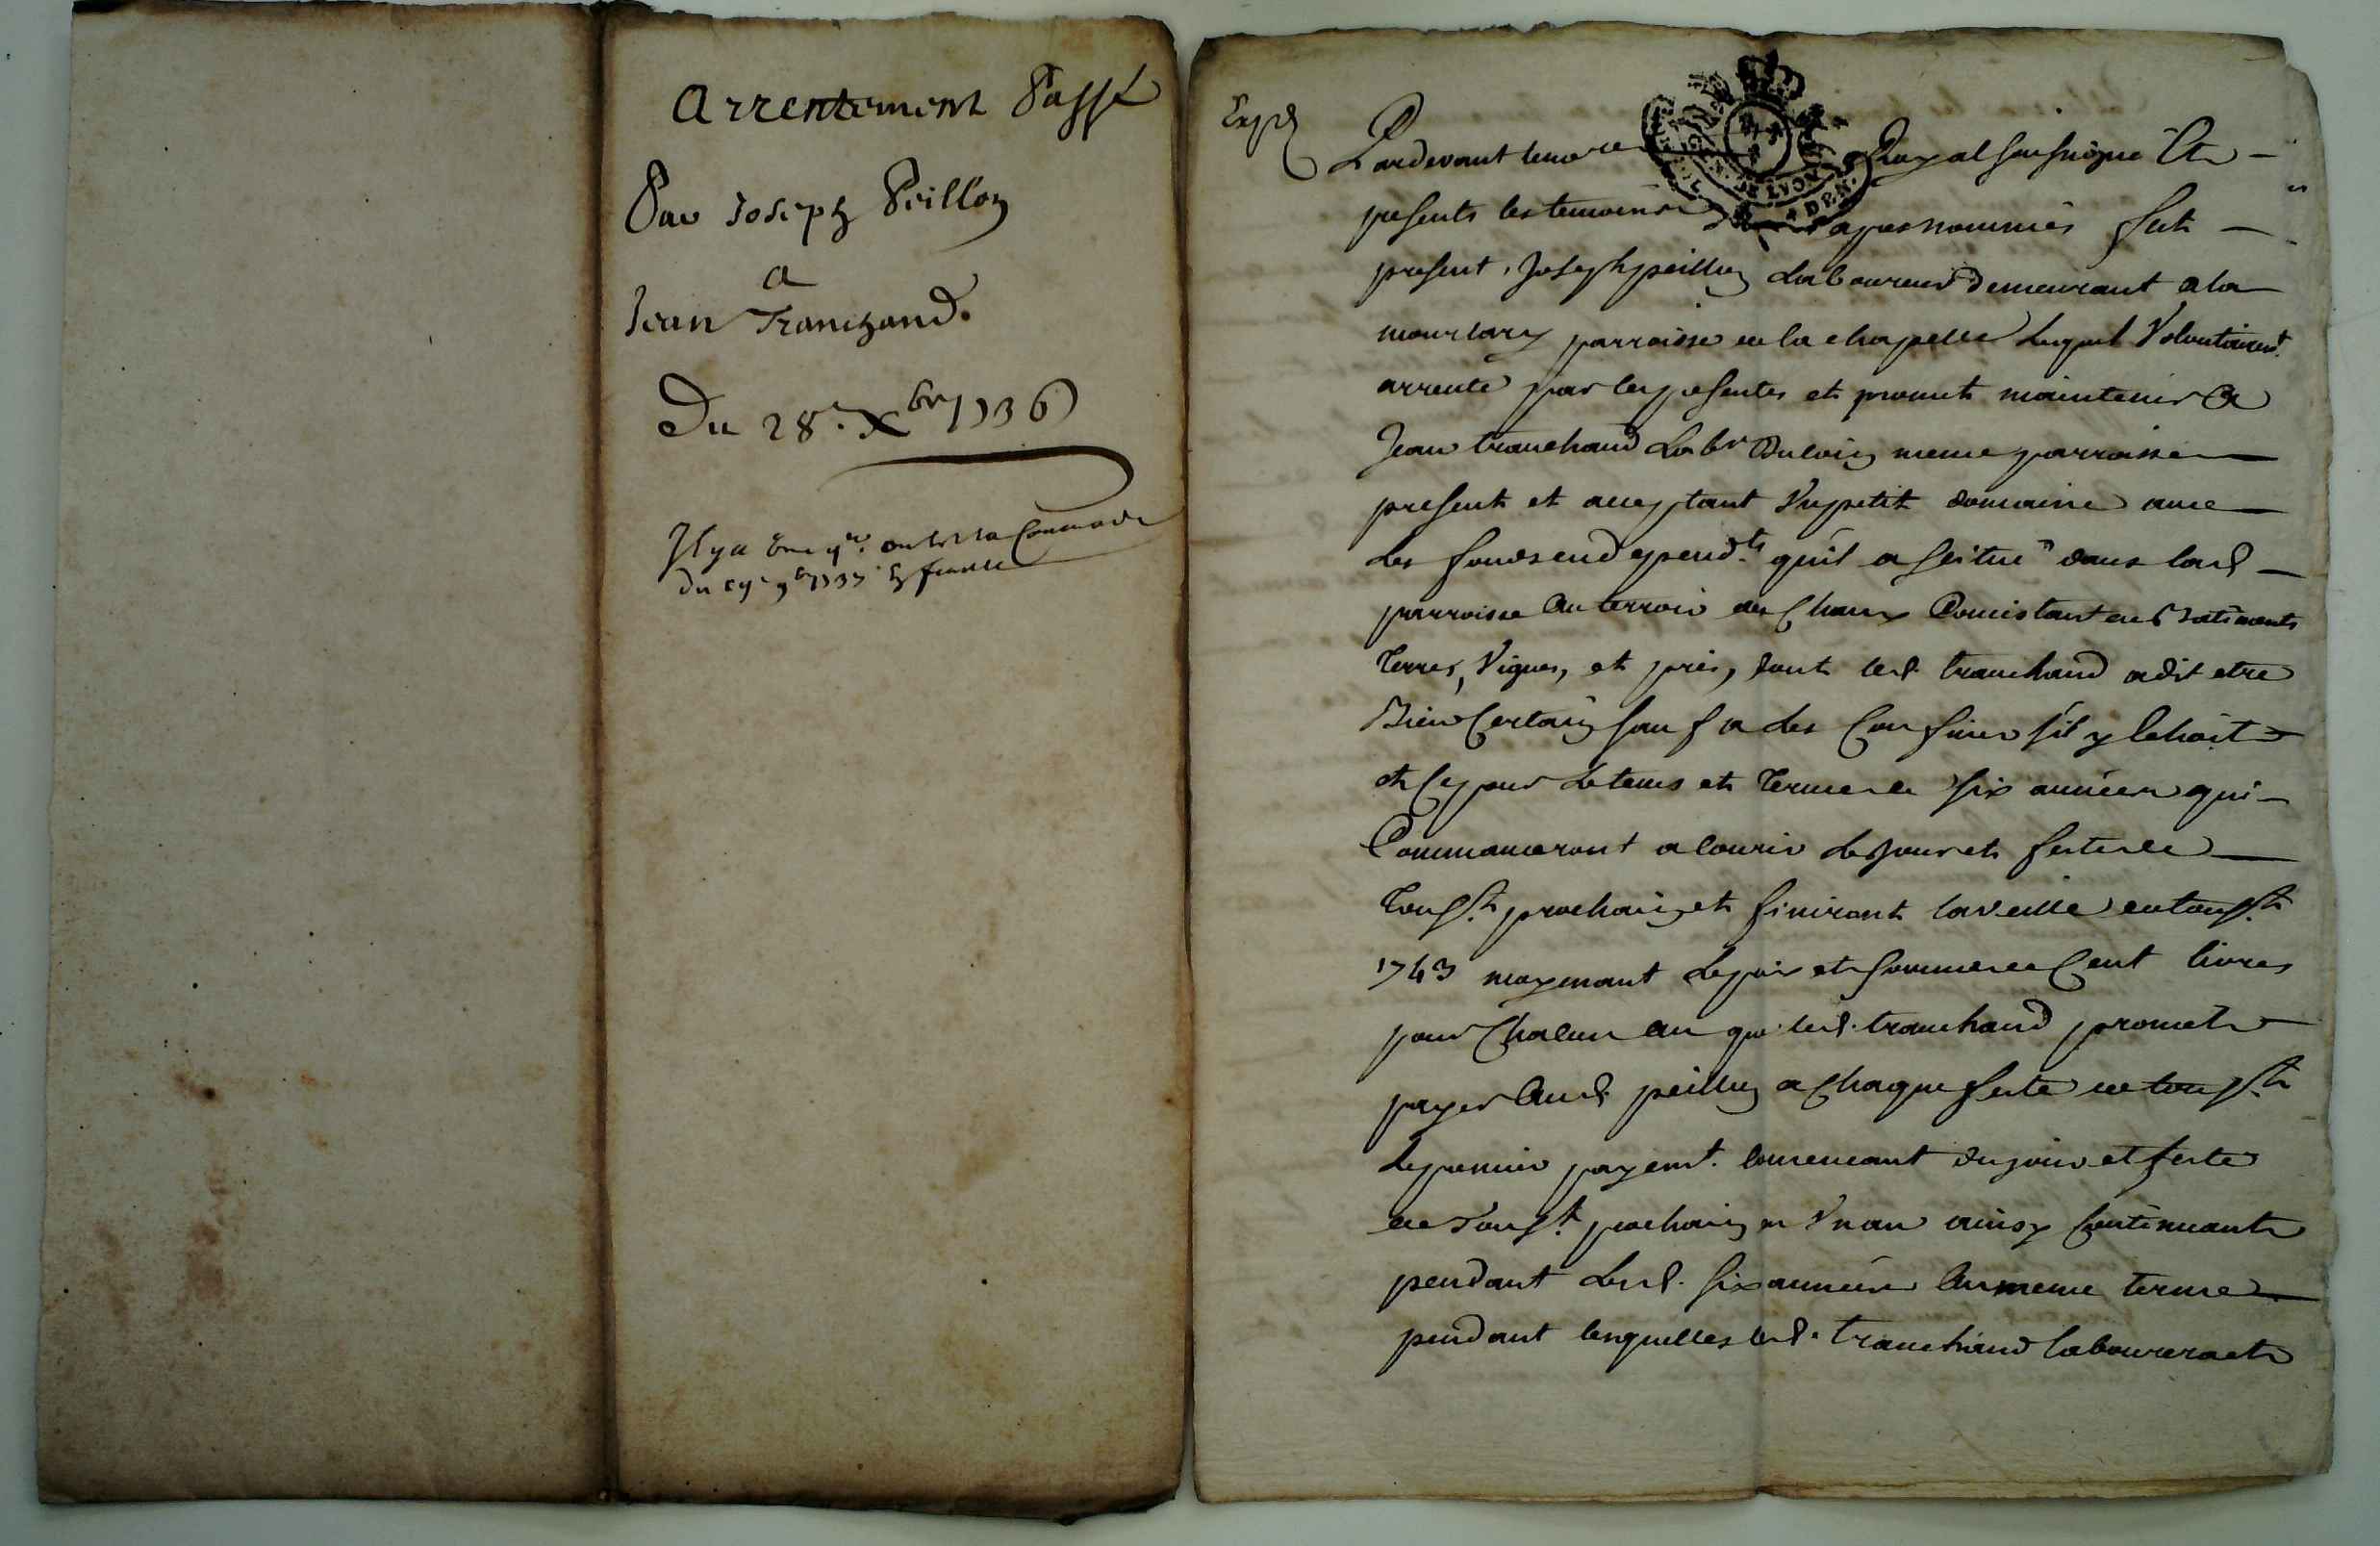 Arrentement Passé
Par Joseph Peillon
a
Jean Tranchand.
Du 28.e Xbre 1736
Il y a
du 9bre 1737
Expé
Pardevant le no.re Royal soussigné Et
presents les temoins apres nommés fut
present, Joseph peillon Laboureur demeurant a la
parroisse de la chapelle Lequel Volontairemt.
arrente par les presentes et promet maintenir a
Jean tranchand Labr même parroisse
present et acceptant Un petit domaine avec
Les fonds en dependts. qu'il a scitué dans lad.
parroisse au terroir des Chaux Concistant en Batiments
Terres, Vignes, et prés, dont led. tranchand a dit etre
Bien Certain sauf a les Confiner s'il y Echoit
et Ce pour Le tems et Terme de six années qui
Commanceront a courir Le jour et feste de
Toust. prochain et finiront la veille de toust.
1743 moyenant Le prix et somme de Cent livres
pour Chacun an que led. tranchand promet
payer aud. peillon a Chaque feste de toust.
Le premier payemt. commencant du jour et feste
de Toust. prochain en Un an ainsy Continuant
pendant Lesd. six années au meme terme
pendant lesquelles led. tranchand labourera et